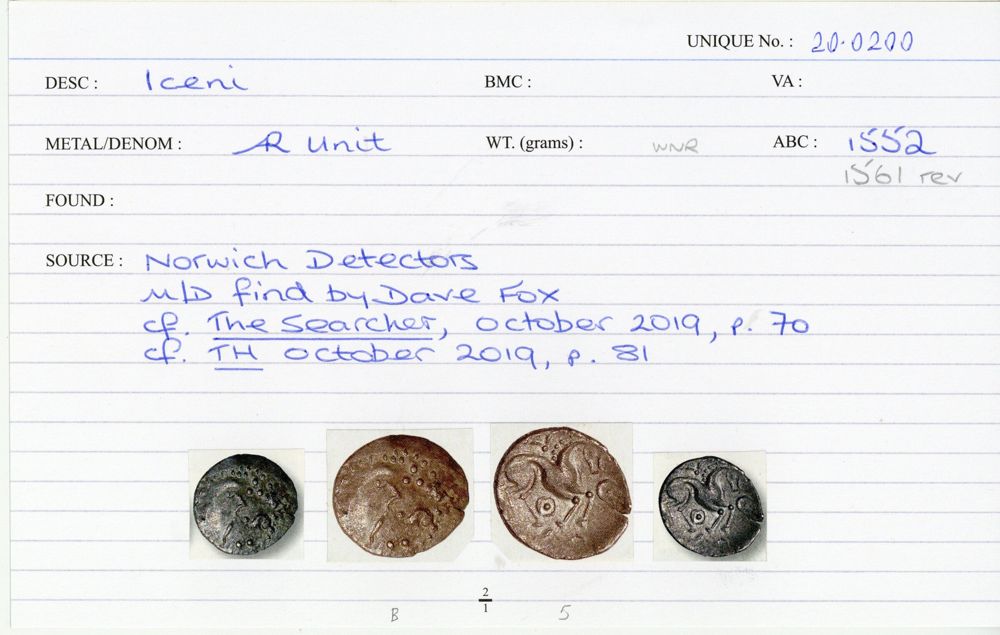 UNIQUE No. : 20.0200
DESC : Iceni BMC : VA :
METAL/DENOM : AR Unit WT. (grams) : WNR ABC : 1552
1561 rev
FOUND :
SOURCE : Norwich Detectors
M/D find by Dave Fox
cf. The Searcher, October 2019, p. 70
cf. TH October 2019, p. 81
2
1
B 5